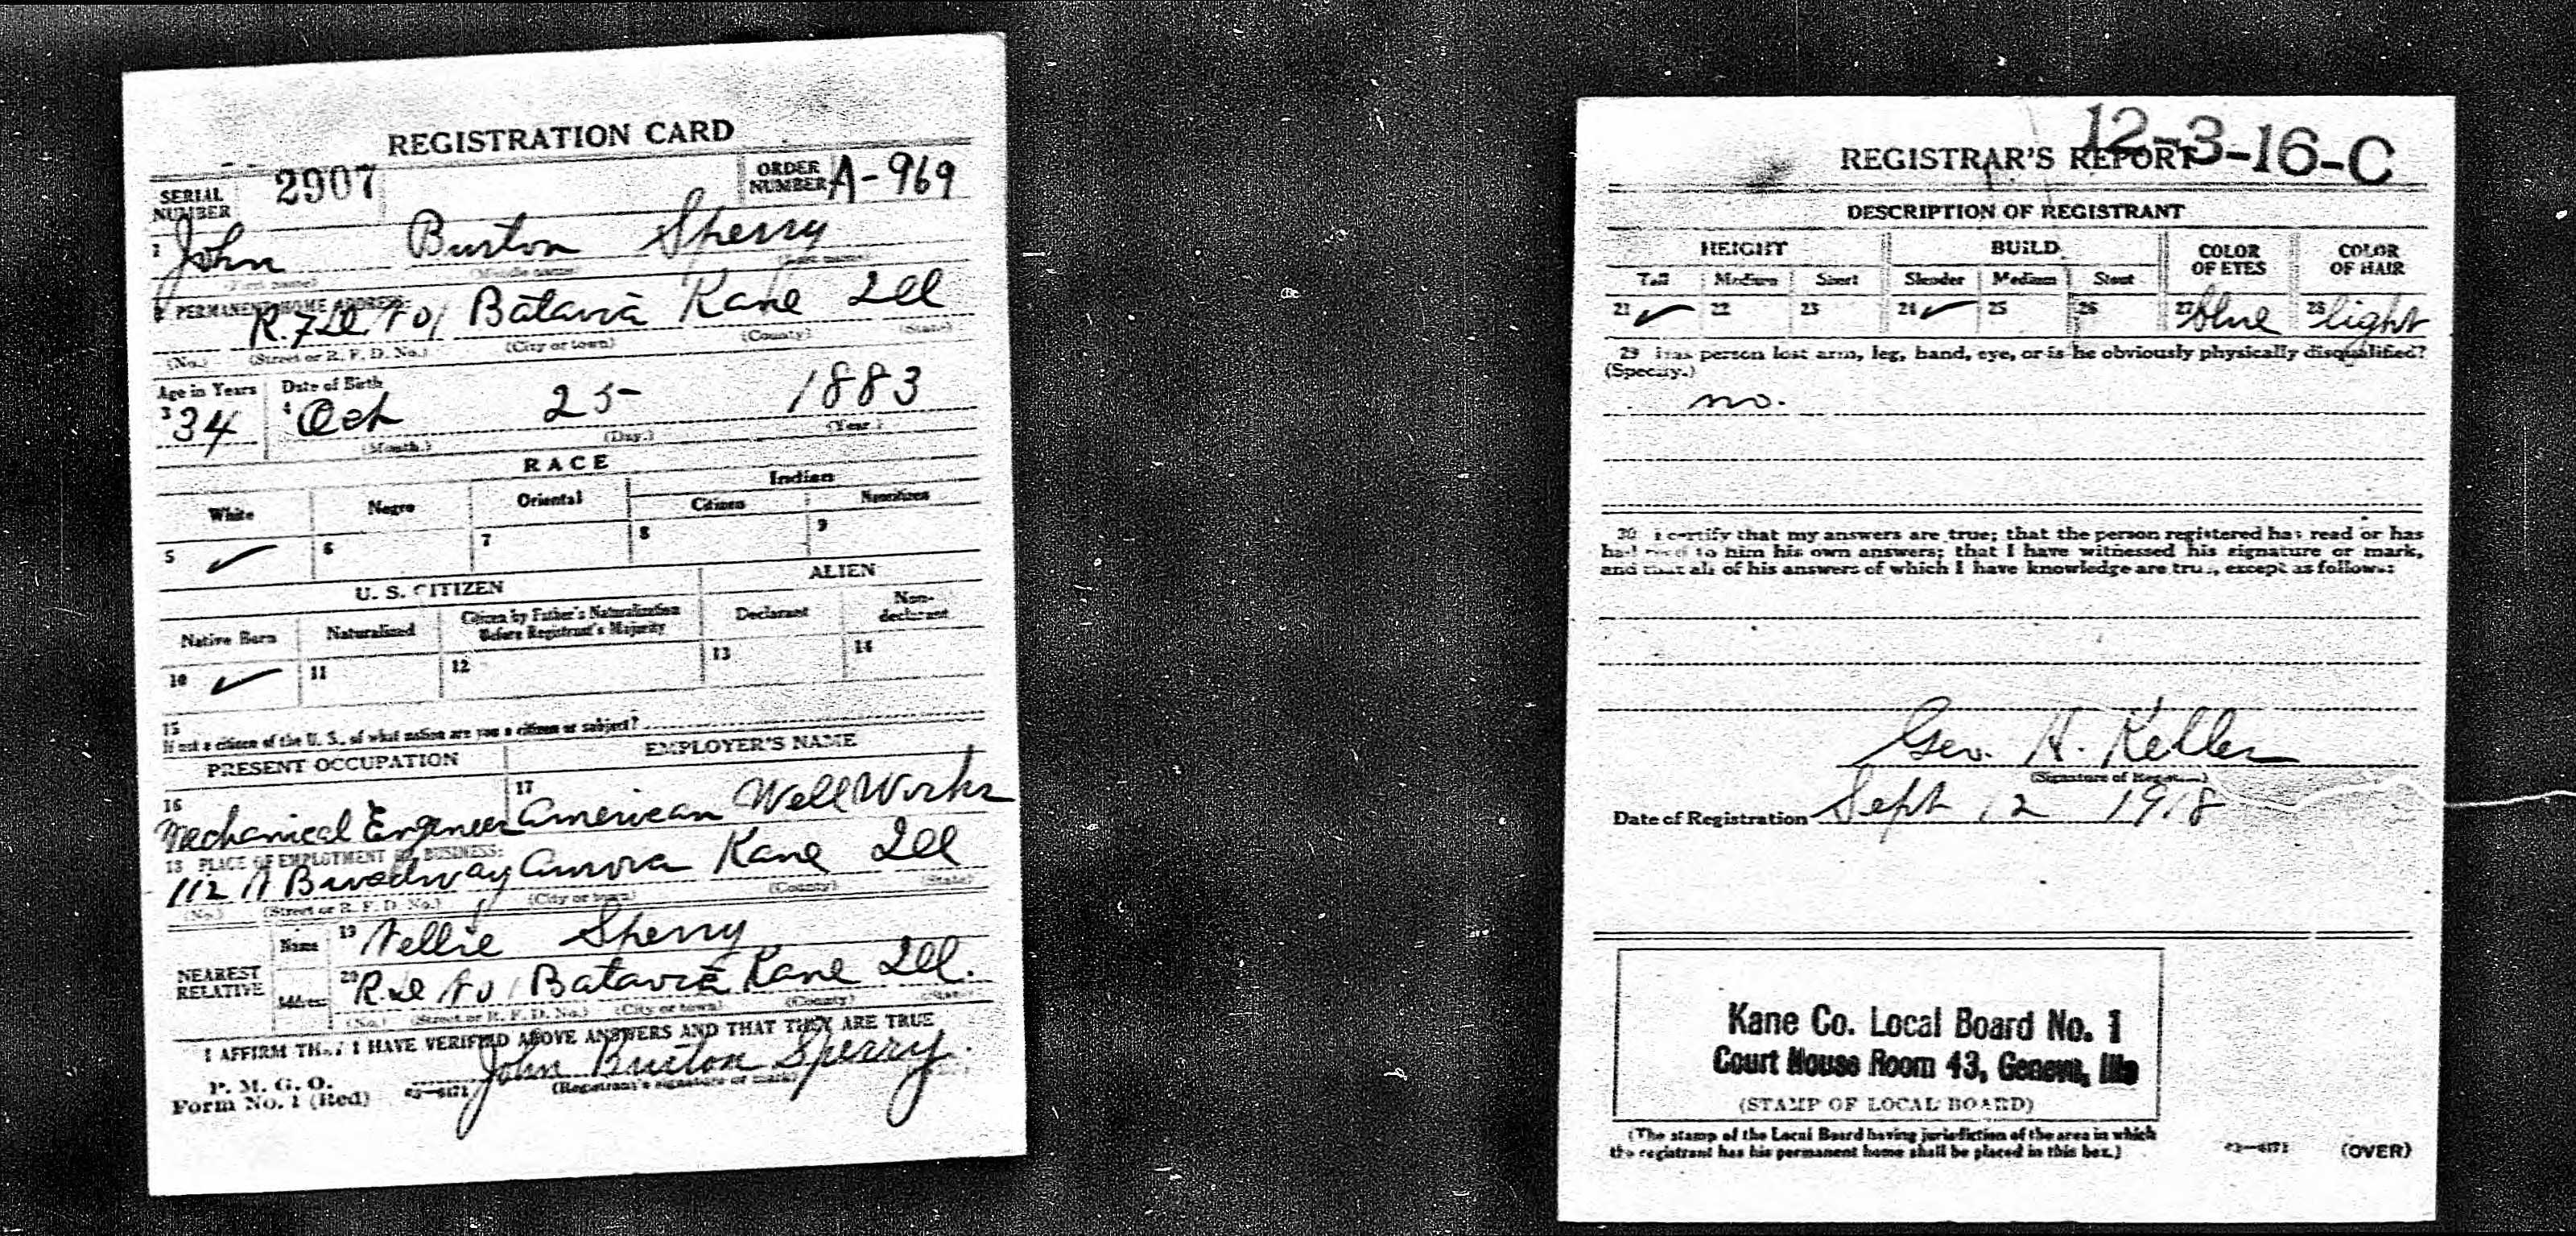 REGISTRATION CARD
SERIAL NUMBER 2907 ORDER NUMBER A-969
1 John Burton Sperry
(First name) (Middle name) (Last name)
2 PERMANENT HOME ADDRESS:
Batavia Kane Ill
(No.) (Street or R. F. D. No.) (City or town) (County) (State)
Age in Years Date of Birth
3 34 4 Oct 25 1883
(Month.) (Day.) (Year.)
RACE
White Negro Oriental Indian
Citizen Noncitizen
5 ✓ 6 7 8 9
U. S. CITIZEN ALIEN
Native Born Naturalized Citizen by Father's Naturalization Before Registrant's Majority Declarant Non-declarant
10 ✓ 11 12 13 14
15
If not a citizen of the U. S., of what nation are you a citizen or subject?
PRESENT OCCUPATION EMPLOYER'S NAME
16 Mechanical Engineer 17 American Well Works
18 PLACE OF EMPLOYMENT OR BUSINESS:
112 N Broadway Aurora Kane Ill
(No.) (Street or R. F. D. No.) (City or town) (County) (State)
NEAREST RELATIVE
Name 19 Nellie Sperry
Address 20 Batavia Kane Ill.
(No.) (Street or R. F. D. No.) (City or town) (County) (State)
I AFFIRM THAT I HAVE VERIFIED ABOVE ANSWERS AND THAT THEY ARE TRUE
P. M. G. O.
Form No. 1 (Red) 03-6171 John Burton Sperry
(Registrant's signature or mark)
12-3-16-C
REGISTRAR'S REPORT
DESCRIPTION OF REGISTRANT
HEIGHT BUILD COLOR OF EYES COLOR OF HAIR
Tall Medium Short Slender Medium Stout
21 ✓ 22 23 24 ✓ 25 26 27 blue 28 light
29 Has person lost arm, leg, hand, eye, or is he obviously physically disqualified?
(Specify.)
no.
30 I certify that my answers are true; that the person registered has read or has
had read to him his own answers; that I have witnessed his signature or mark,
and that all of his answers of which I have knowledge are true, except as follows:
Geo. H. Keller
(Signature of Registrar)
Date of Registration Sept 12 1918
Kane Co. Local Board No. 1
Court House Room 43, Geneva, Ills
(STAMP OF LOCAL BOARD)
(The stamp of the Local Board having jurisdiction of the area in which
the registrant has his permanent home shall be placed in this box.)
03-6171 (OVER)